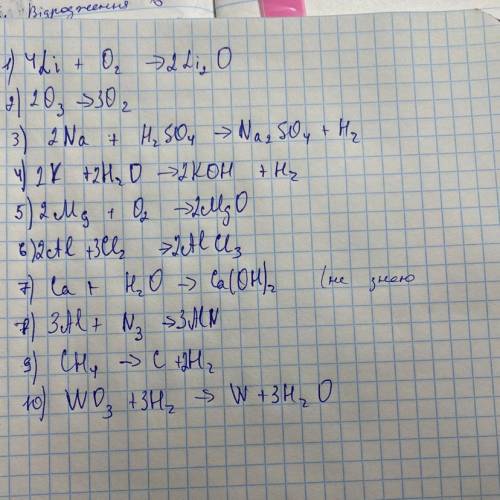 Відродження
1) 4Li + O₂ → 2Li₂O
2) 2O₃ → 3O₂
3) 2Na + H₂SO₄ → Na₂SO₄ + H₂
4) 2K + 2H₂O → 2KOH + H₂
5) 2Mg + O₂ → 2MgO
6) 2Al + 3Cl₂ → 2AlCl₃
7) Ca + H₂O → Ca(OH)₂ (не знаю
8) 3Al + N₃ → 3AlN
9) CH₄ → C + 2H₂
10) WO₃ + 3H₂ → W + 3H₂O